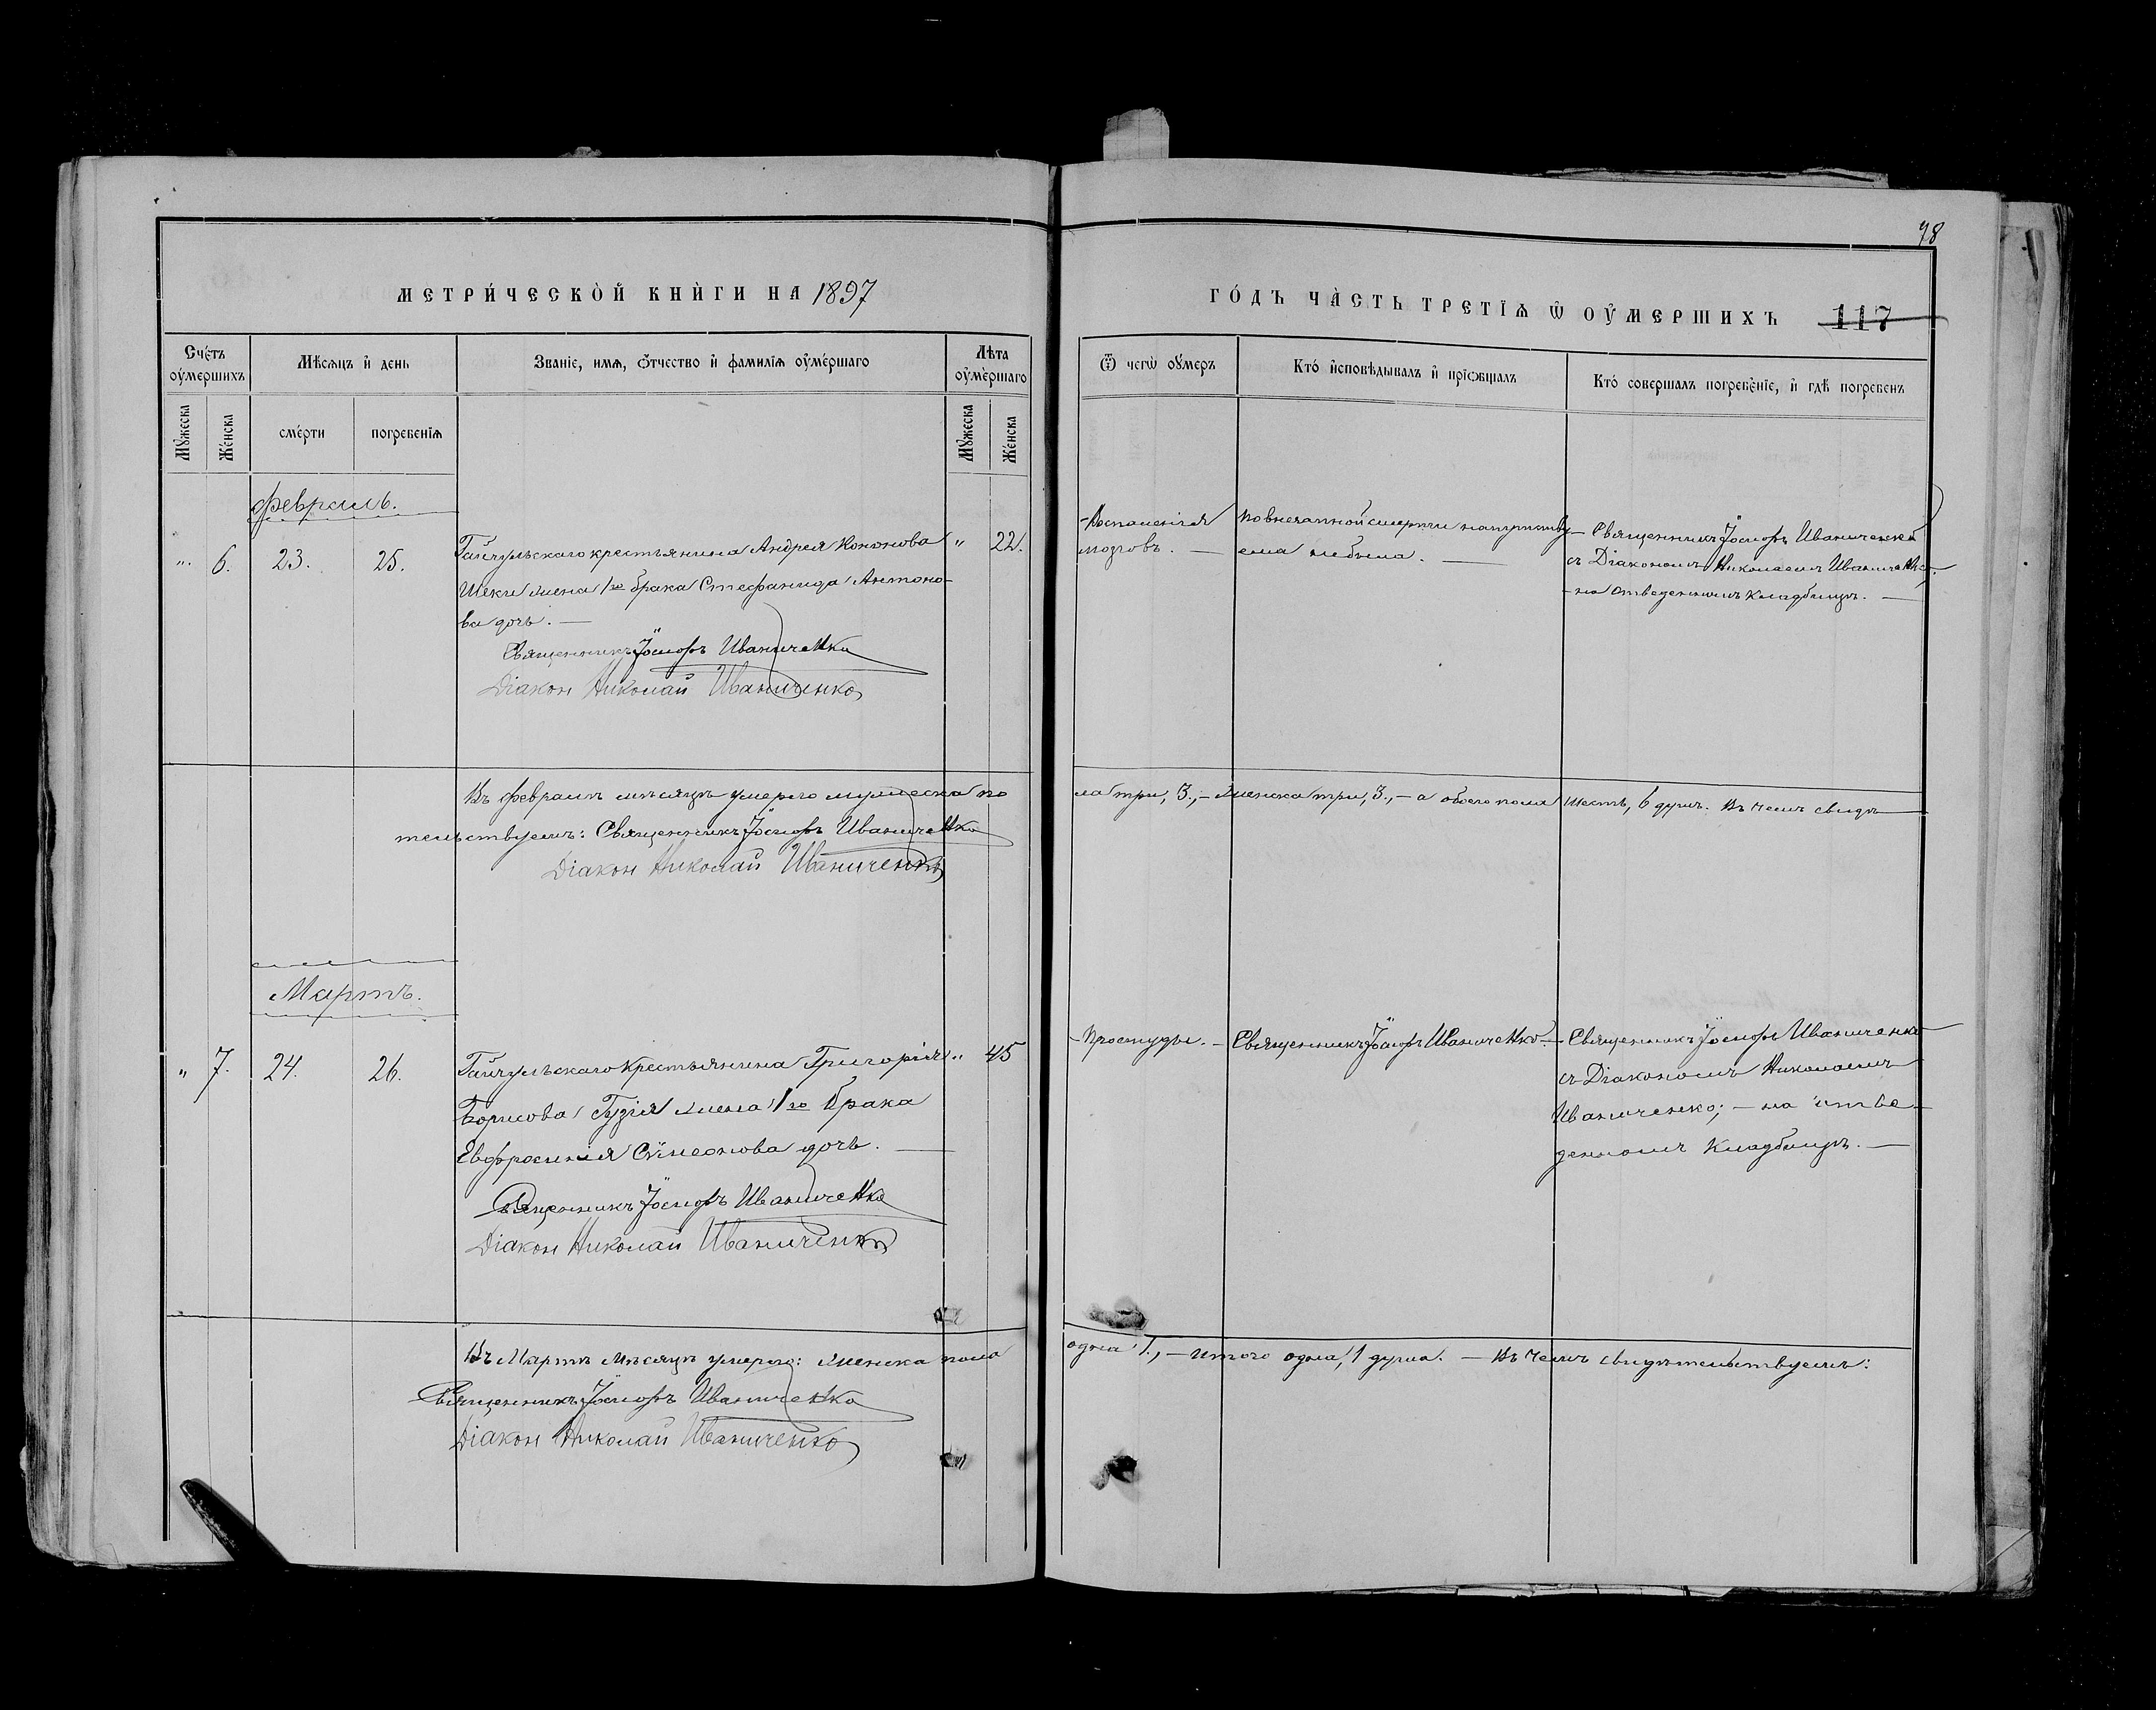 78
МЕТРИ́ЧЕСКОЙ КНИ́ГИ НА 1897
ГО́ДЪ ЧА́СТЬ ТРЕТІѦ Ѡ ОУ҆МЕРШИХЪ 117
Счетъ оу҆мершихъ
Мѣсяцъ и҆ день
Званіе, имя, ѿчество и҆ фамилія оу҆мершаго
Лѣта оу҆мершаго
Мꙋжеска
Женска
смерти
погребенія
Мꙋжеска
Женска
Ѿ чегѡ оу҆меръ
Кто и҆сповѣдывалъ и҆ пріѡбщалъ
Кто совершалъ погребеніе, и҆ гдѣ погребенъ
Февраль.
„ 6. 23. 25.
Гайчульскаго крестьянина Андрея Кононова
Шеки жена 1го брака Стефанида Антоно-
ва дочь. —
„ 22.
Священникъ Іосифъ Иваниченко
Діакон Николай Иваниченко
Воспаленія
мозговъ. —
По внезапной смерти напутству-
ема небыла. —
Священникъ Іосифъ Иваниченко
съ Діакономъ Николаемъ Иваниченко.
— на отведенномъ кладбищѣ. —
Въ Февралѣ мѣсяцѣ умерло мужеска по
ла три, 3., — женска три, 3., — а обоего пола шесть, 6 душъ. Въ чемъ свидѣ
тельствуемъ: Священникъ Іосифъ Иваниченко
Діакон Николай Иваниченко
Мартъ.
„ 7. 24. 26.
Гайчульскаго крестьянина Григорія
Борисова Гузія жена 1го брака
Евфросинія Сѵмеонова дочь. —
„ 45
Священникъ Іосифъ Иваниченко
Діакон Николай Иваниченко
Простуды. —
Священникъ Іосифъ Иваниченко. —
Священникъ Іосифъ Иваниченко
съ Діакономъ Николаемъ
Иваниченко; — на отве-
денномъ кладбищѣ. —
Въ Мартѣ мѣсяцѣ умерло: женска пола
одна 1., — итого одна, 1 душа. — Въ чемъ свидѣтельствуемъ:
Священникъ Іосифъ Иваниченко
Діакон Николай Иваниченко